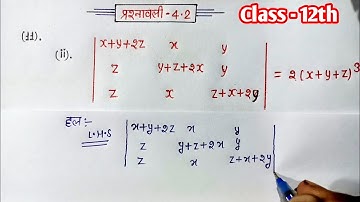 प्रश्नावली-4.2
Class - 12th
(11).
(ii).
| x+y+2z x y |
| z y+z+2x y | = 2(x+y+z)³
| z x z+x+2y |
हल:-
L.H.S
| x+y+2z x y |
| z y+z+2x y |
| z x z+x+2y |